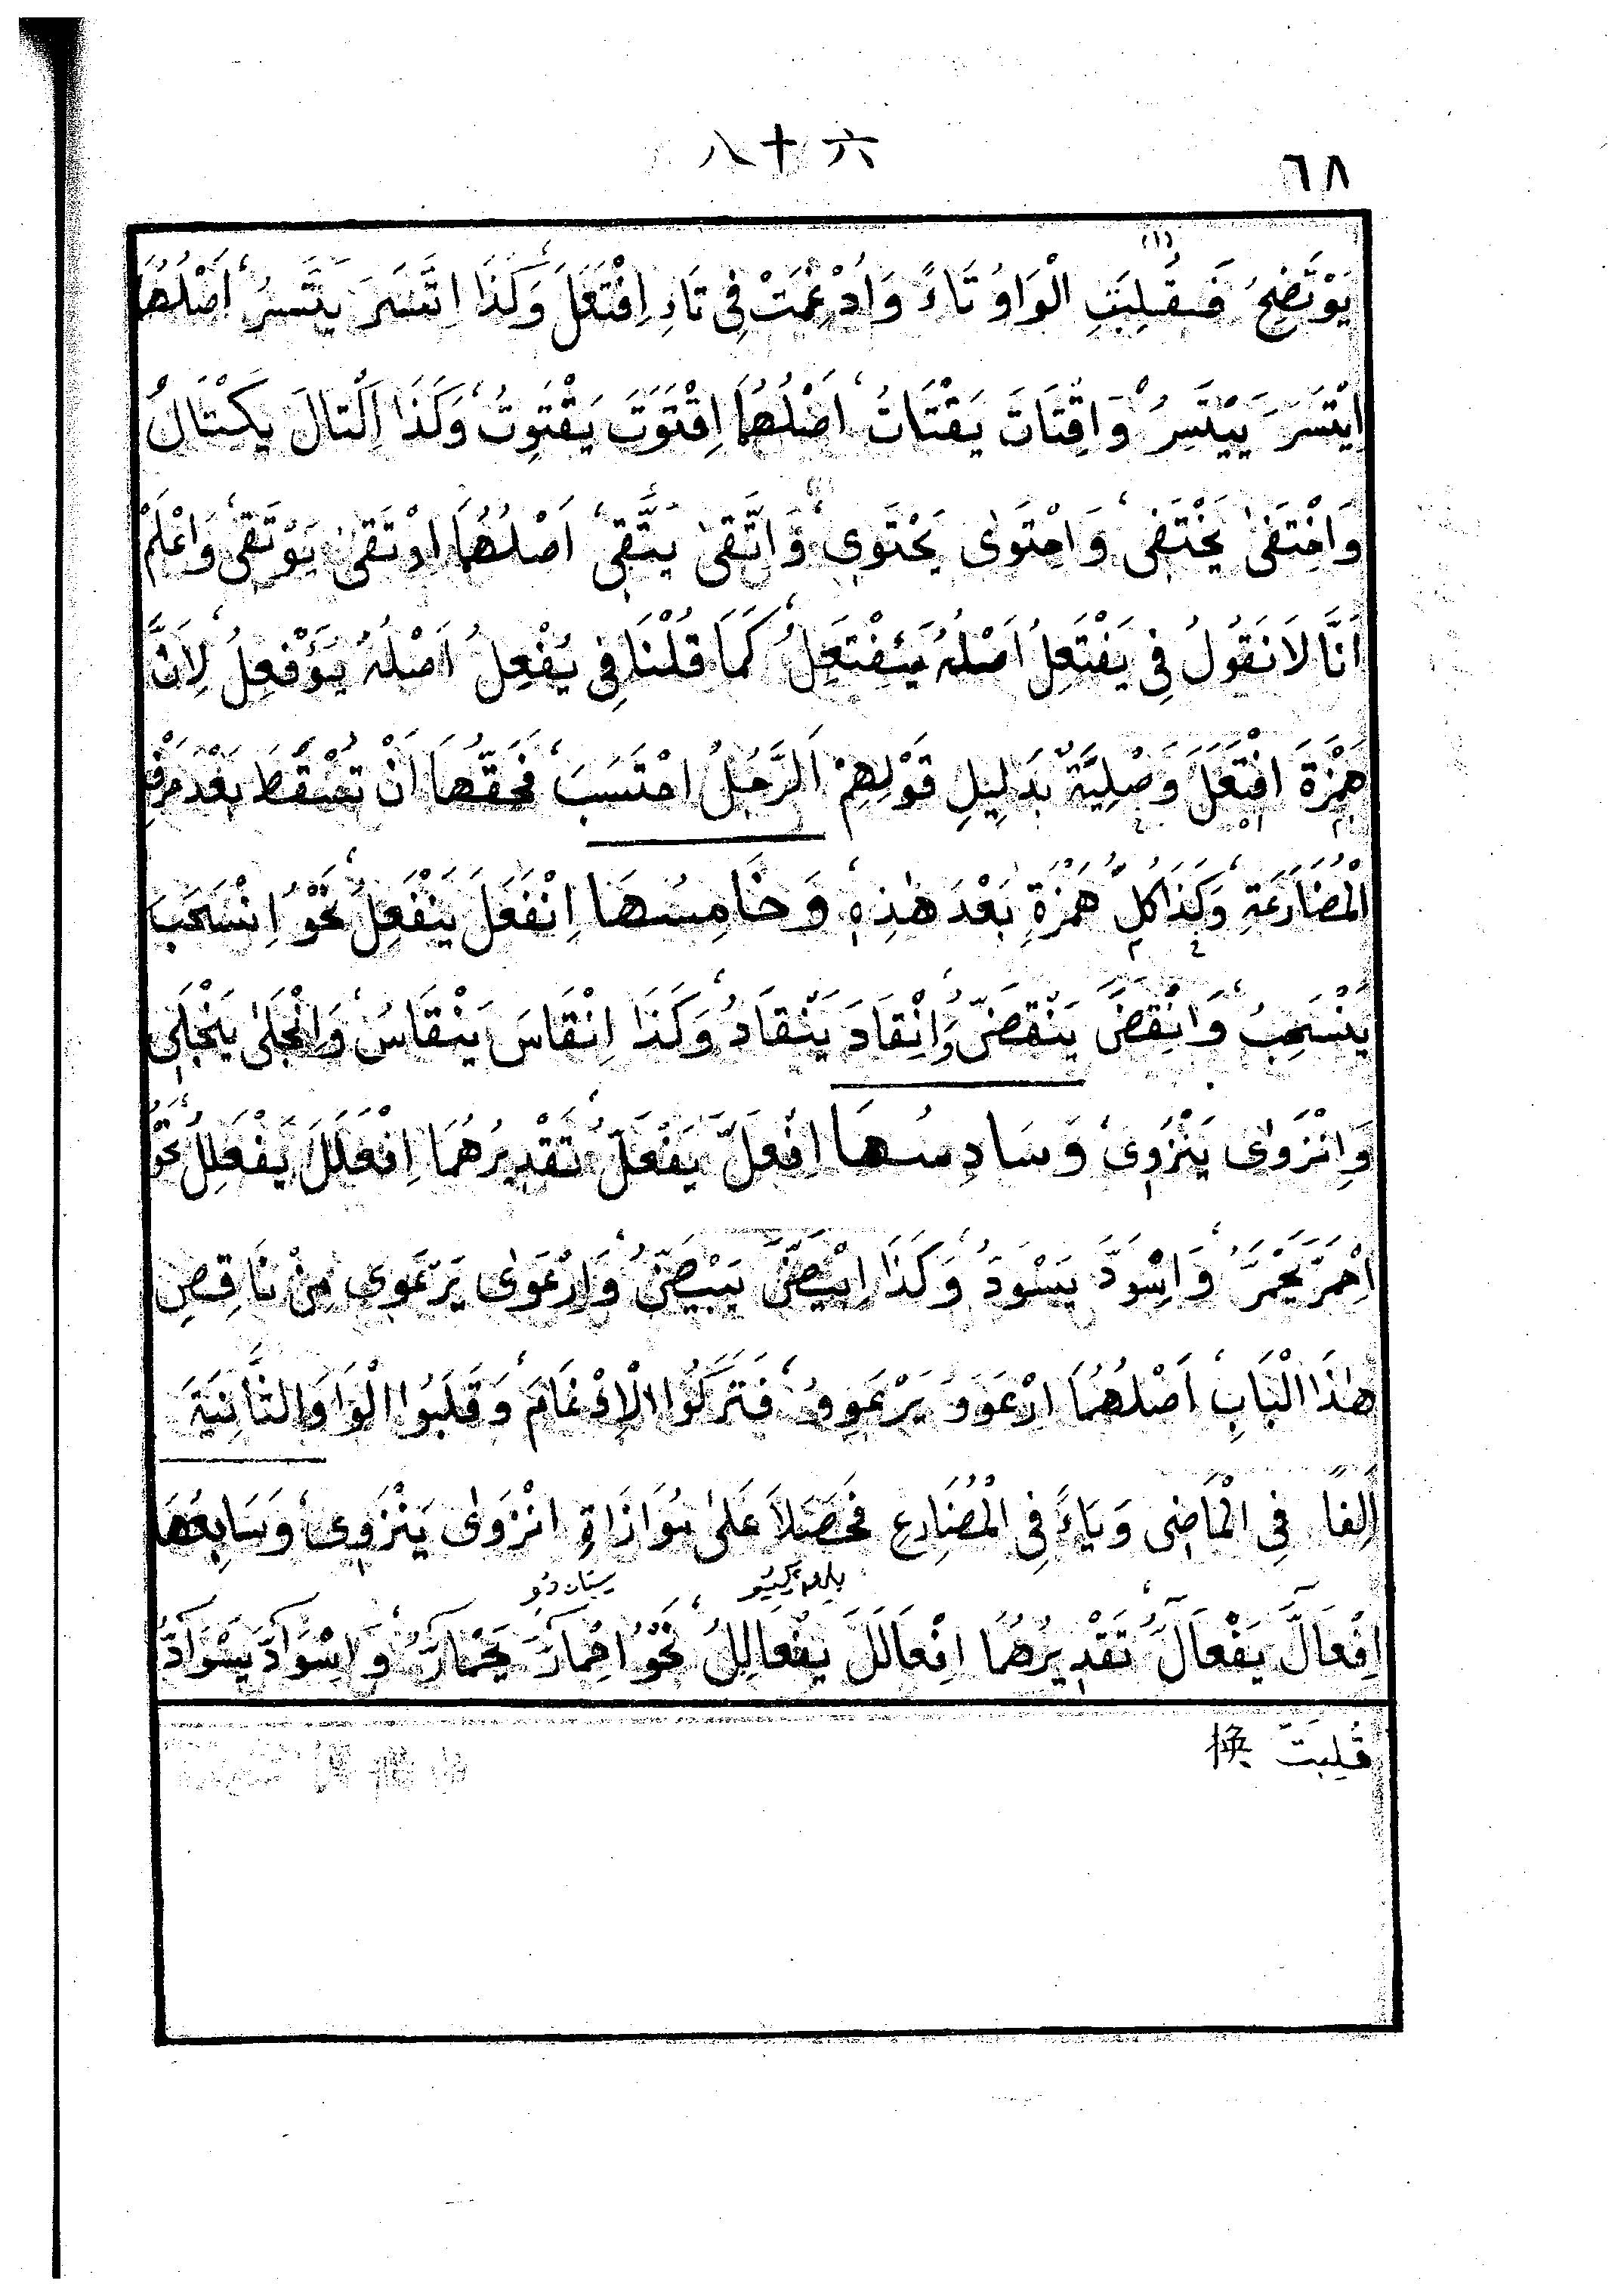 八十六
٦٨
(١)
يَوْتَضِحُ فَقُلِبَتِ الْوَاوُ تَاءً وَاُدْغِمَتْ فِى تَاءِ اِفْتَعَلَ، وَكَذَا اِتَّسَرَ يَتَّسِرُ، اَصْلُهُمَا
اِيْتَسَرَ يَيْتَسِرُ، وَاقْتَاتَ يَقْتَاتُ، اَصْلُهُمَا اِقْتَوَتَ يَقْتَوِتُ، وَكَذَا اِكْتَالَ يَكْتَالُ
وَاخْتَفٰى يَخْتَفِى، وَاحْتَوٰى يَحْتَوِى، وَاتَّقٰى يَتَّقِى، اَصْلُهُمَا اِوْتَقٰى يَوْتَقِى، وَاعْلَمْ
اَنَّا لَا نَقُولُ فِى يَفْتَعِلُ اَصْلُهُ يَئَفْتَعِلُ، كَمَا قُلْنَا فِى يُفْعِلُ اَصْلُهُ يُؤَفْعِلُ، لِاَنَّ
هَمْزَةَ افْتَعَلَ وَصْلِيَّةٌ بِدَلِيلِ قَوْلِهِمْ اَلرَّجُلُ احْتَسَبَ، فَحَقُّهَا اَنْ تُسْقَطَ بَعْدَ حَرْفِ
الْمُضَارَعَةِ، وَكَذَا كُلُّ هَمْزَةٍ بَعْدَ هٰذِهِ، وَخَامِسُهَا اِنْفَعَلَ يَنْفَعِلُ، نَحْوُ اِنْسَحَبَ
يَنْسَحِبُ، وَانْقَضَّ يَنْقَضُّ، وَانْقَادَ يَنْقَادُ، وَكَذَا اِنْقَاسَ يَنْقَاسُ، وَانْجَلٰى يَنْجَلِى
وَانْزَوٰى يَنْزَوِى، وَسَادِسُهَا اِفْعَلَّ يَفْعَلُّ، تَقْدِيرُهُمَا اِفْعَلَلَ يَفْعَلِلُ، نَحْوُ
اِحْمَرَّ يَحْمَرُّ، وَاسْوَدَّ يَسْوَدُّ، وَكَذَا اِبْيَضَّ يَبْيَضُّ، وَارْعَوٰى يَرْعَوِى مِنْ نَاقِصِ
هٰذَا الْبَابِ، اَصْلُهُمَا ارْعَوَوَ يَرْعَوِوُ، فَتَرَكُوا الْاِدْغَامَ، وَقَلَبُوا الْوَاوَ الثَّانِيَةَ
اَلِفًا فِى الْمَاضِى وَيَاءً فِى الْمُضَارِعِ فَحَصَلَا عَلٰى مُوَازَاةِ انْزَوٰى يَنْزَوِى، وَسَابِعُهَا
اِفْعَالَّ يَفْعَالُّ، تَقْدِيرُهُمَا اِفْعَالَلَ يَفْعَالِلُ، نَحْوُ احْمَارَّ يَحْمَارُّ، وَاسْوَادَّ يَسْوَادُّ
قُلِبَتْ 换